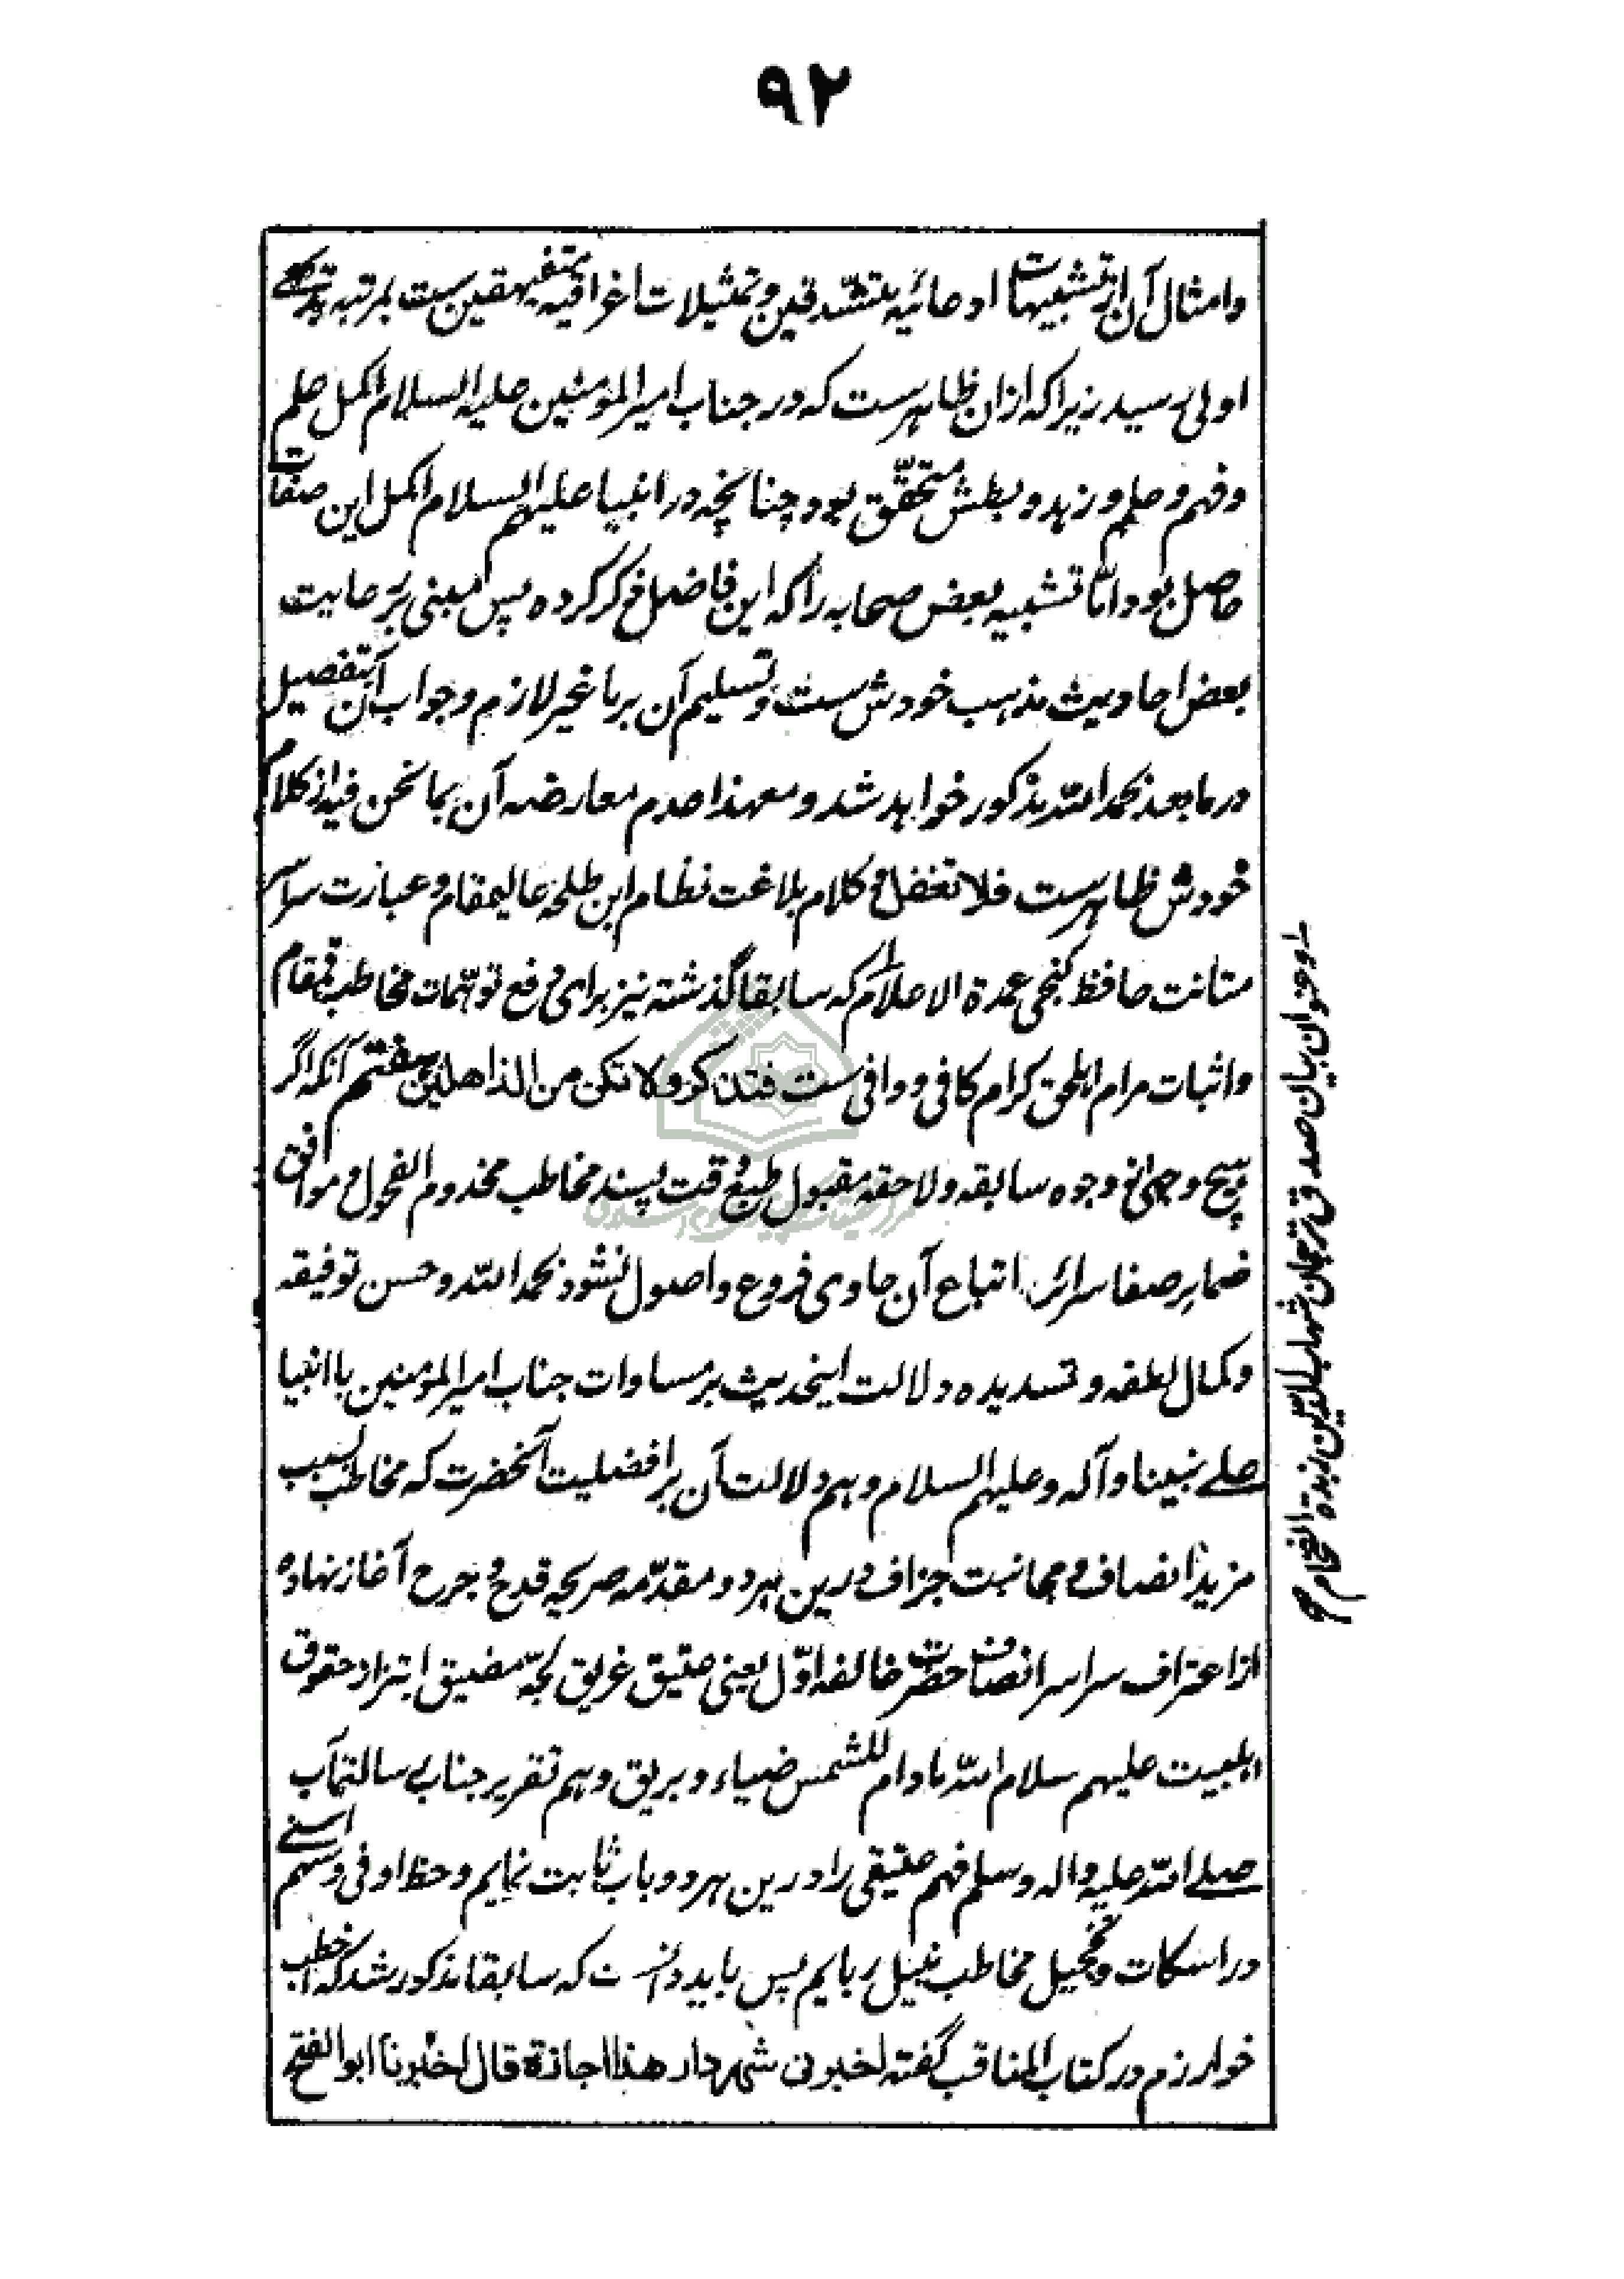 ۹۲
وامثال آن از تشبیهات ادعائیه متشدقین و تمثیلات اغراقیه متفیهقین ست بمرتبه
اولی میرسد زیراکه ازان ظاهرست که در جناب امیرالمؤمنین علیه السلام اکمل علم
وفهم و حلم و زهد و بطش متحقّق بود چنانچه در انبیا علیهم السلام اکمل این صفات
حاصل بود و امّا تشبیه بعض صحابه را که این فاضل ذکر کرده پس مبنی بر رعایت
بعض احادیث مذهب خودش ست و تسلیم آن بر ما غیر لازم و جواب آن بتفصیل
در ما بعد بحمد اللّه مذکور خواهد شد و معهذا عدم معارضه آن بما نحن فیه از کلام
خودش ظاهرست فلا تغفل و کلام بلاغت نظام ابن طلحه عالیمقام و عبارت سراسر
متانت حافظ کنجی عمدة الاعلام که سابقا گذشته نیز برای دفع توهّمات مخاطب قمقام
واثبات مرام اهلحق کرام کافی و وافی ست فتذکر ولا تکن من الذاهلین هفتم آنکه اگر
هیچ وجهی از وجوه سابقه و لاحقه مقبول طبع دقت پسند مخاطب مخدوم الفحول و موافق
ضمایر صفا سرائر اتباع آن حاوی فروع و اصول نشود بحمد اللّه و حسن توفیقه
وکمال لطفه و تسدیده دلالت اینحدیث بر مساوات جناب امیرالمؤمنین با انبیا
صلے نبینا و آله و علیهم السلام و هم دلالت آن بر افضلیت آنحضرت که مخاطب بسبب
مزید انصاف و مجانبت جزاف درین هر دو مقدّمه صریحه قدح و جرح آغاز نهاده
از اعتراف سراسر انصاف حضرت خالفه اوّل یعنی عتیق غریق لجّه مضیق ابتزاز حقوق
اهلبیت علیهم سلام اللّه مادام للشمس ضیاء و بریق و هم تقریر جناب رسالتمآب
صلے اللّه علیه واله وسلم فهم عتیقی را درین هر دو باب ثابت نمایم و حظ اوفی و سهم اسنے
در اسکات و تخجیل مخاطب نبیل ربایم پس باید دانست که سابقا مذکور شد که اخطب
خوارزم در کتاب المناقب گفته اخبرنی شهردار هذا اجازة قال اخبرنا ابو الفتح
بیان صدق ترجمان شهاب الدّین زبدة الفخام